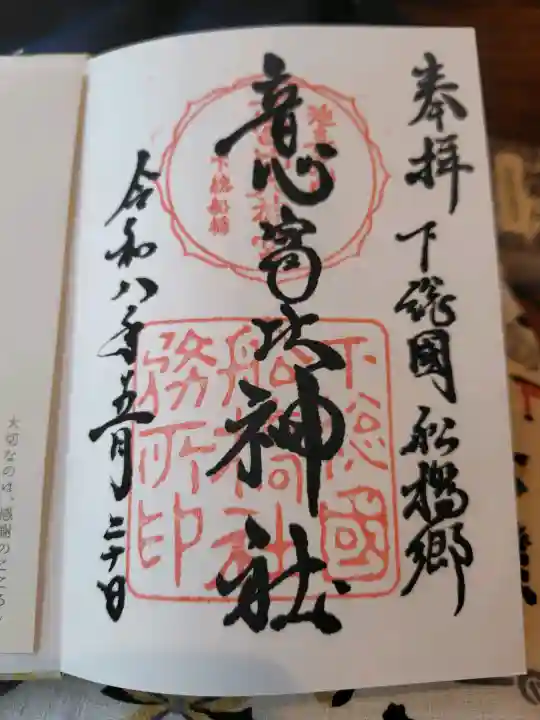 奉拝 下総國 船橋郷
意富比神社
令和八年五月二十日
下総船橋
下総國
船橋社
務所印
大切なのは、感謝のこころ